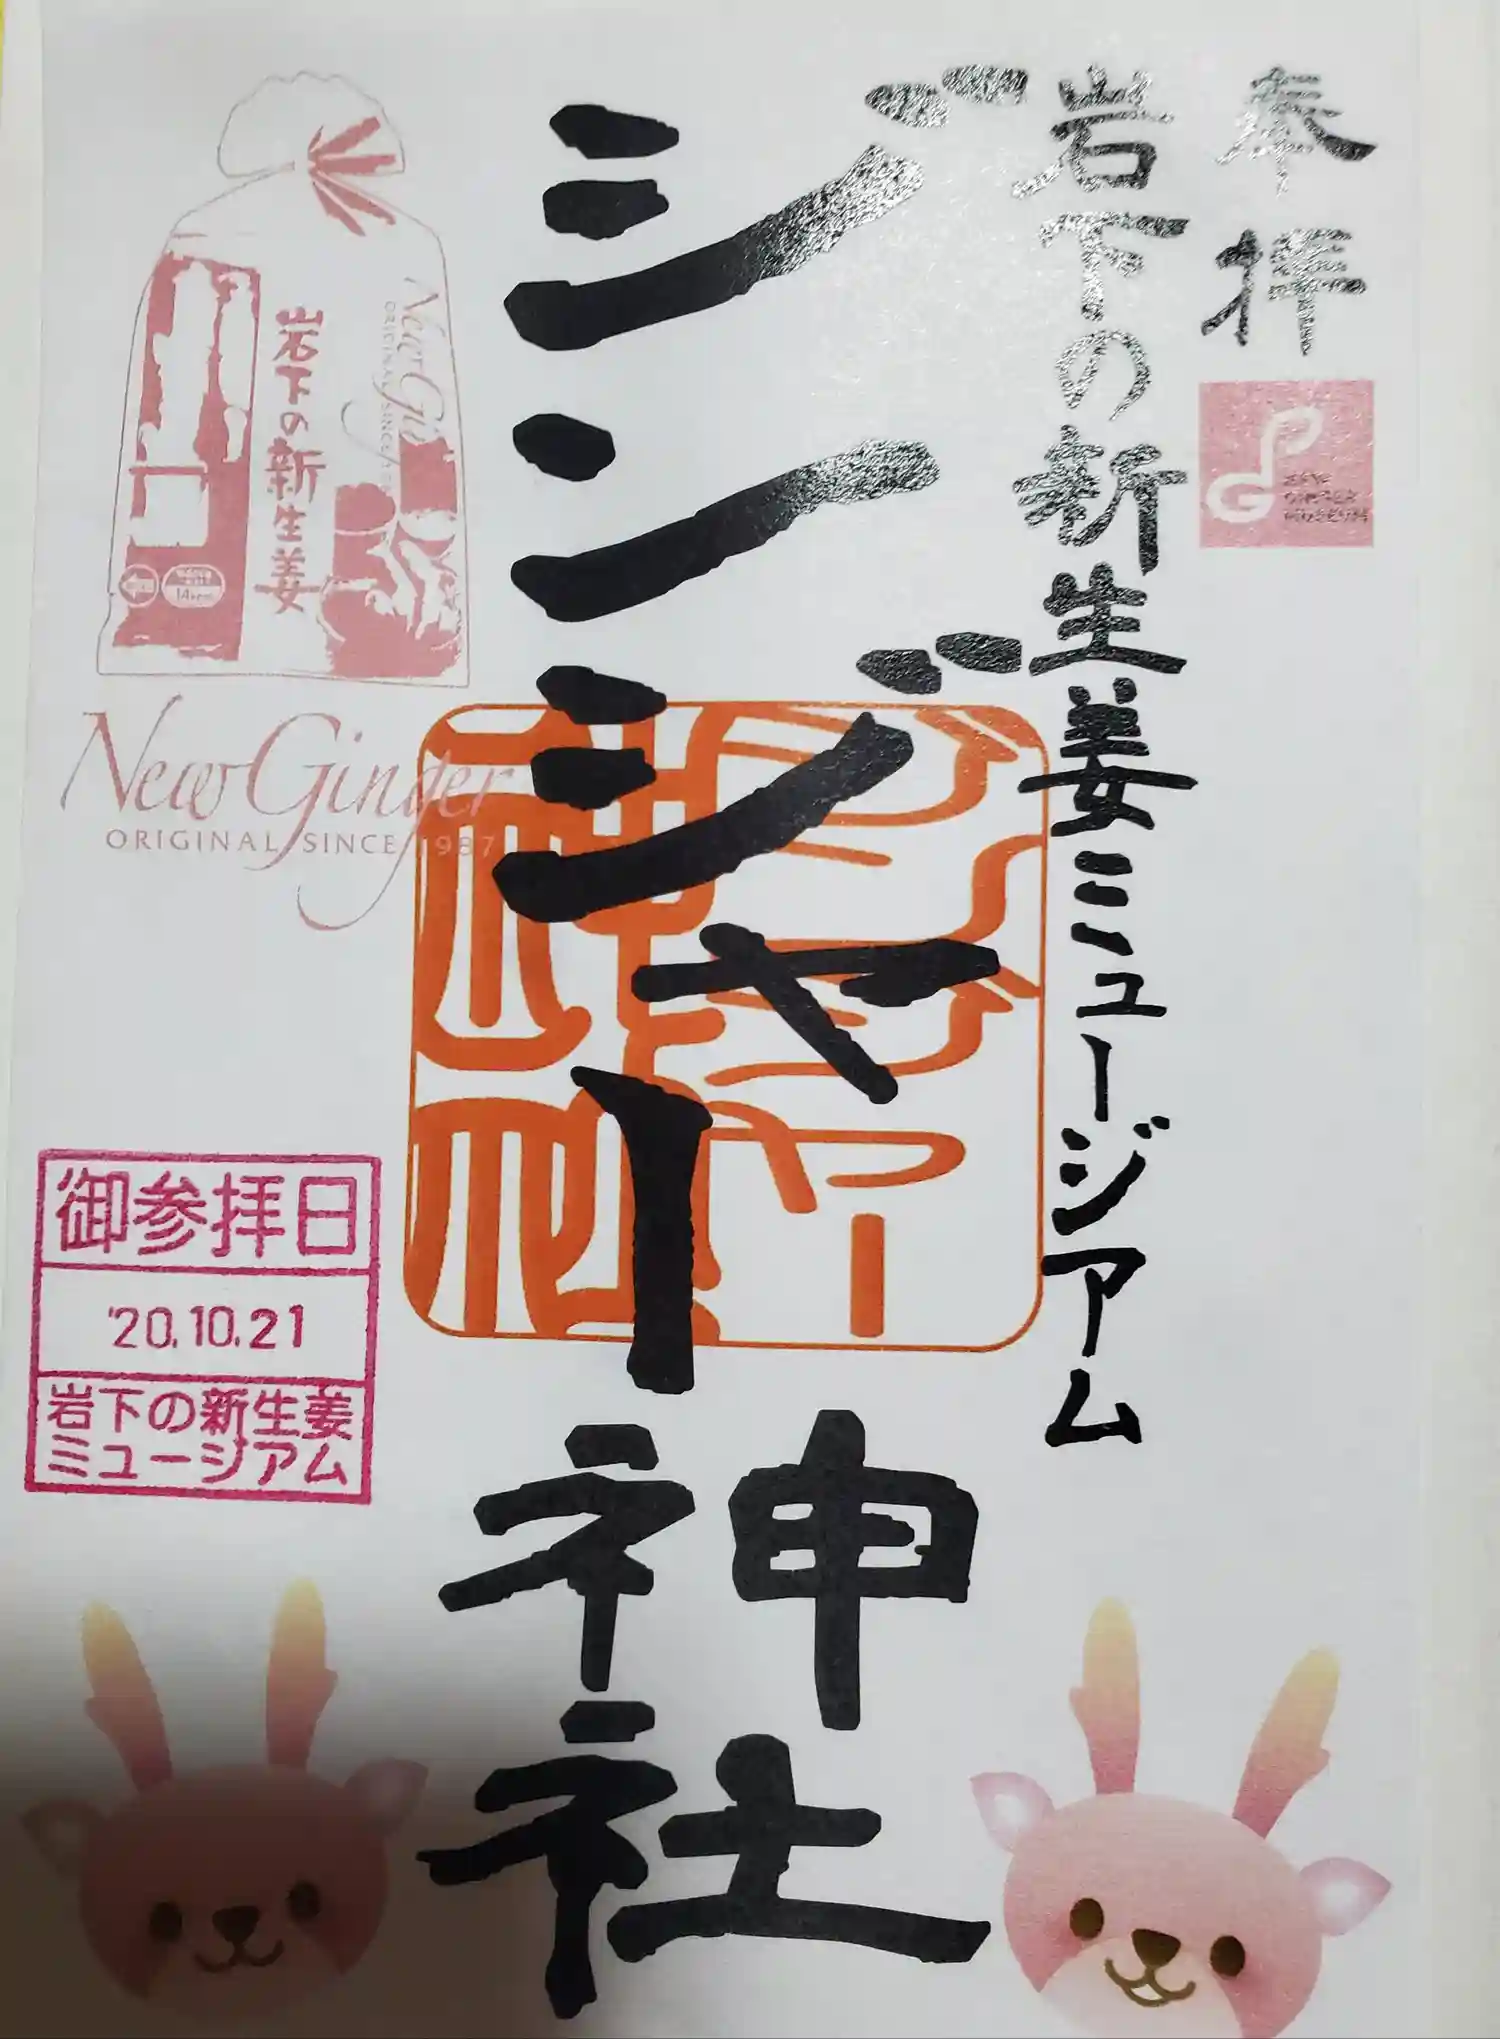 奉拝
NEW
GINGER
MUSEUM
岩下の新生姜ミュージアム
ジンジャー神社
岩下の新生姜
New Ginger
ORIGINAL SINCE 1987
御参拝日
'20.10.21
岩下の新生姜
ミュージアム